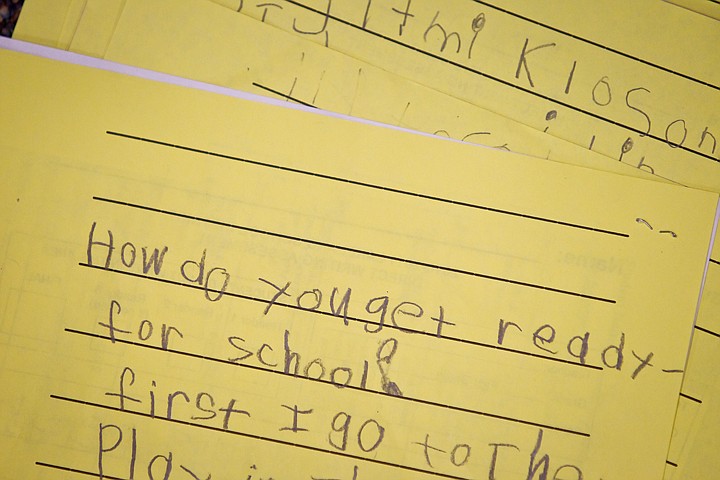 Kloson
How do you get ready
for school?
first I go to The
Play in